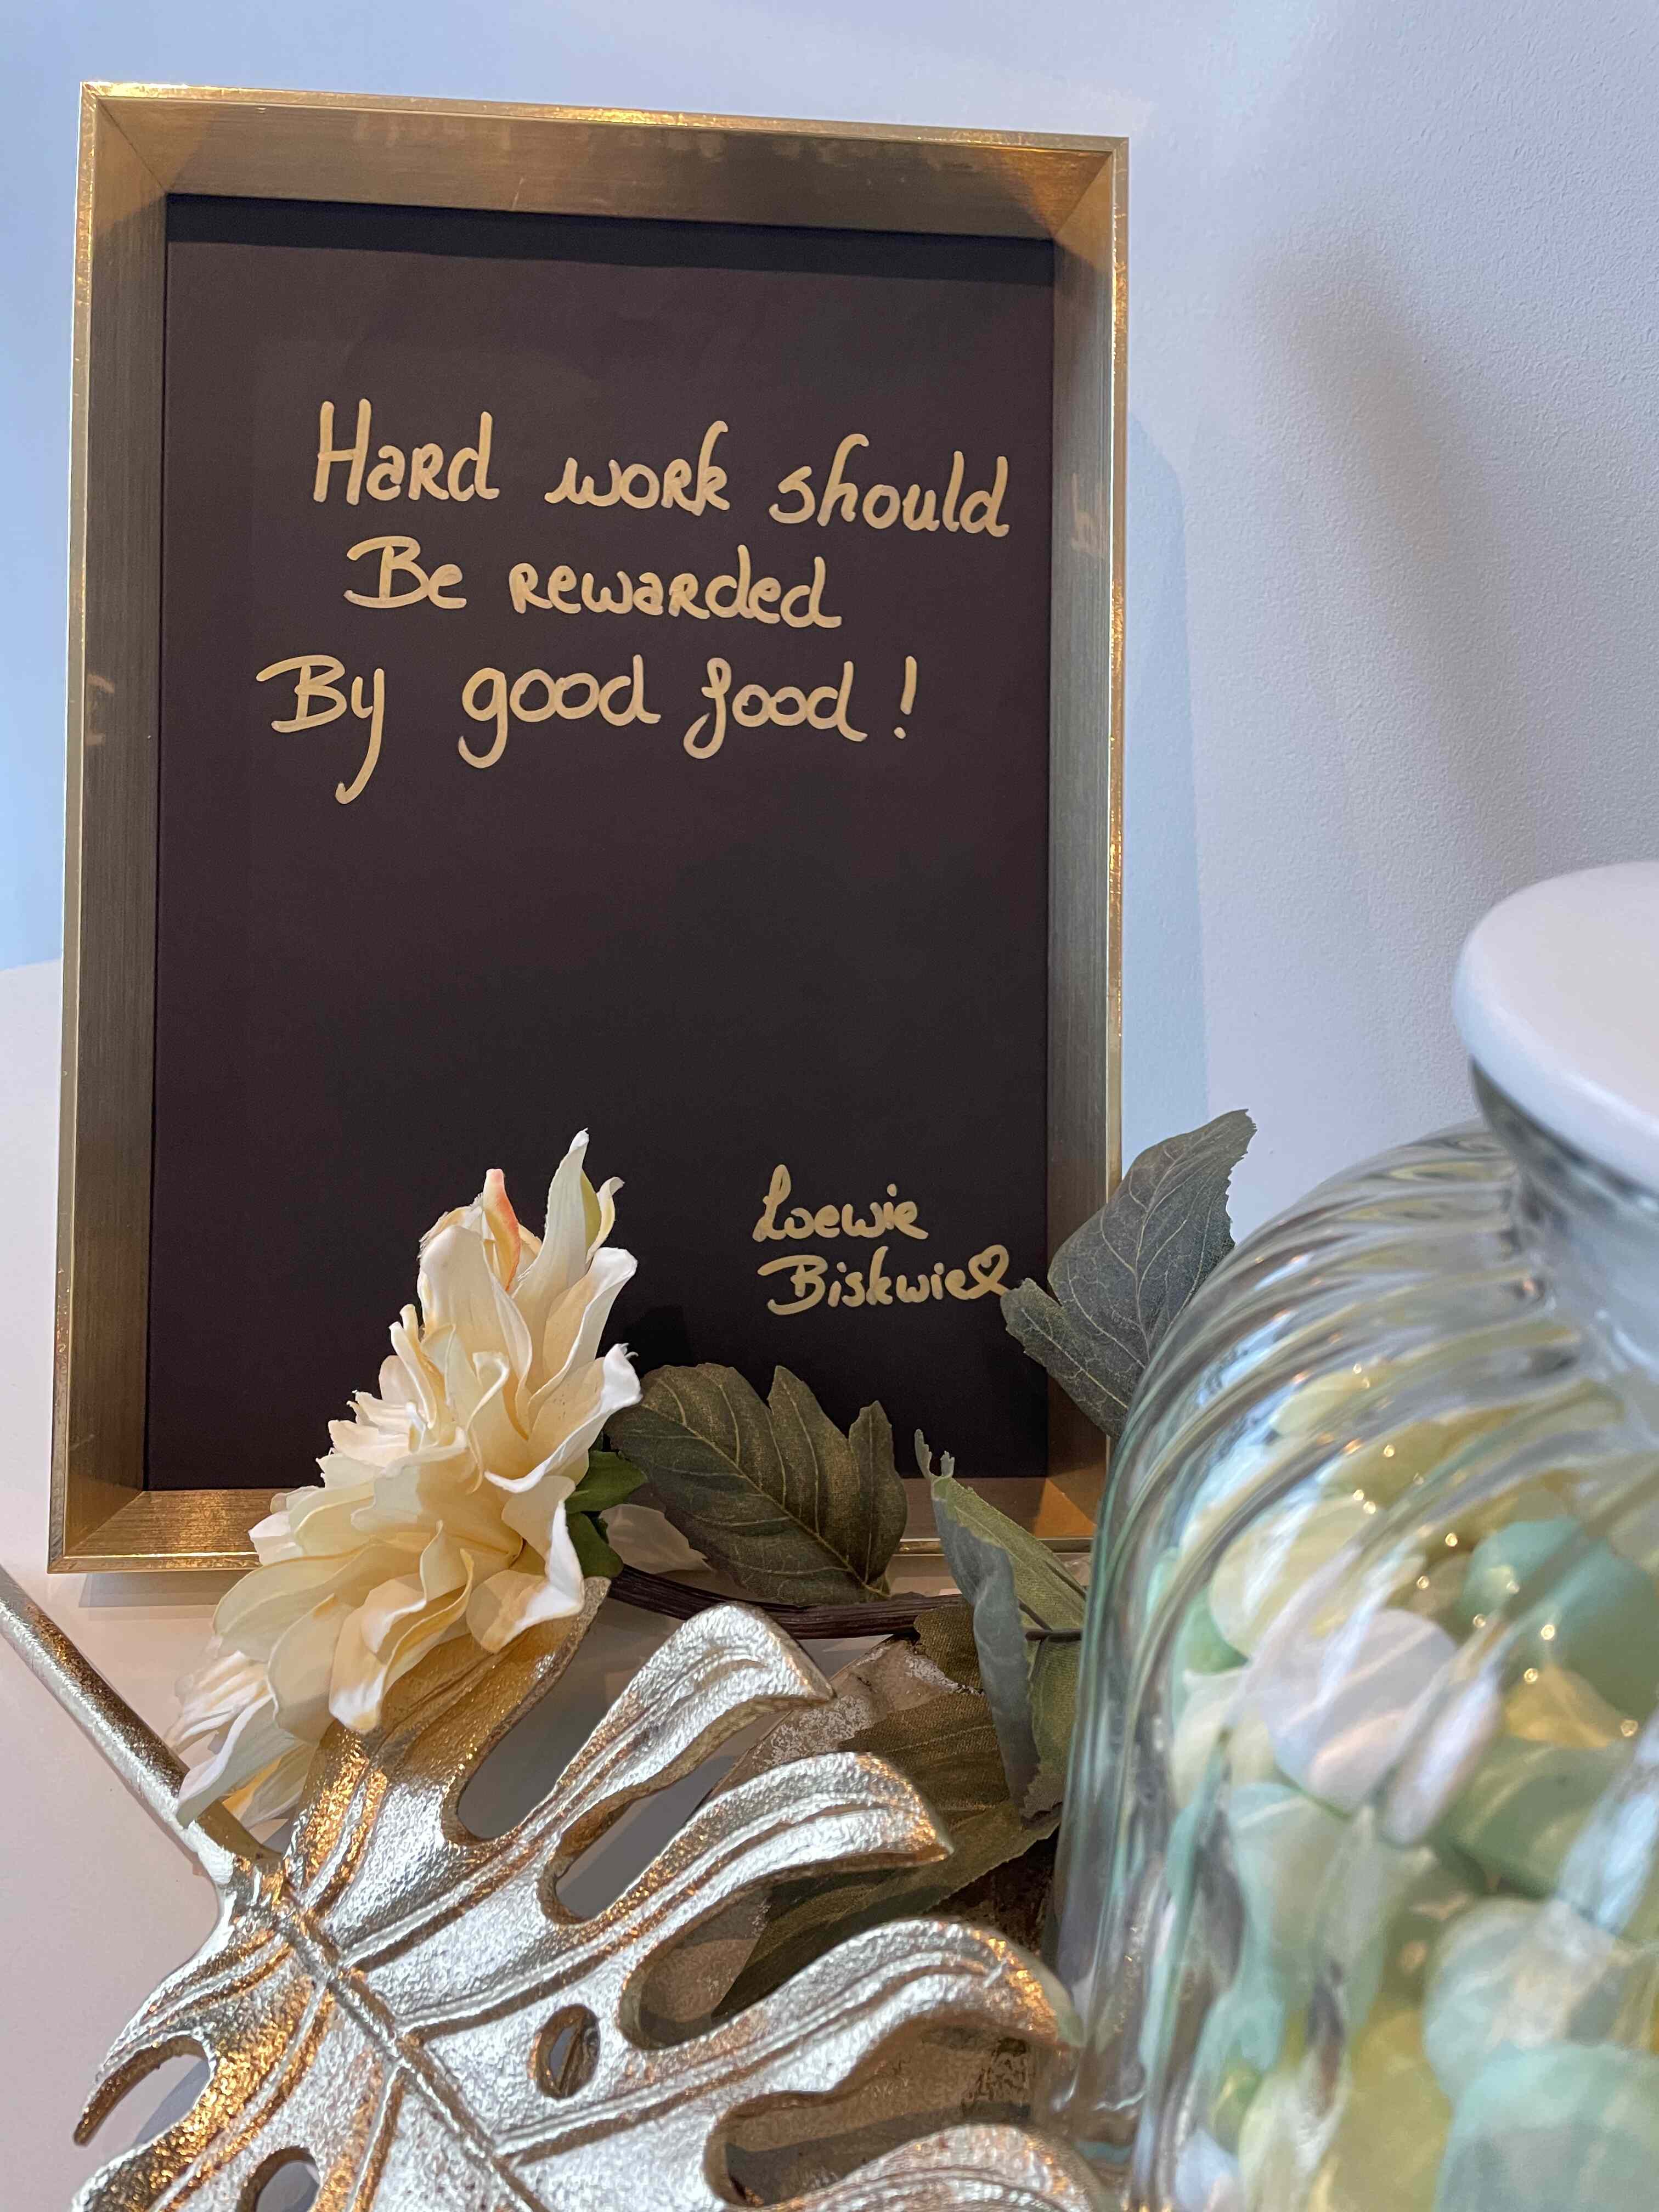 Hard work should
Be rewarded
By good food!
Loewie
Biskwie♡